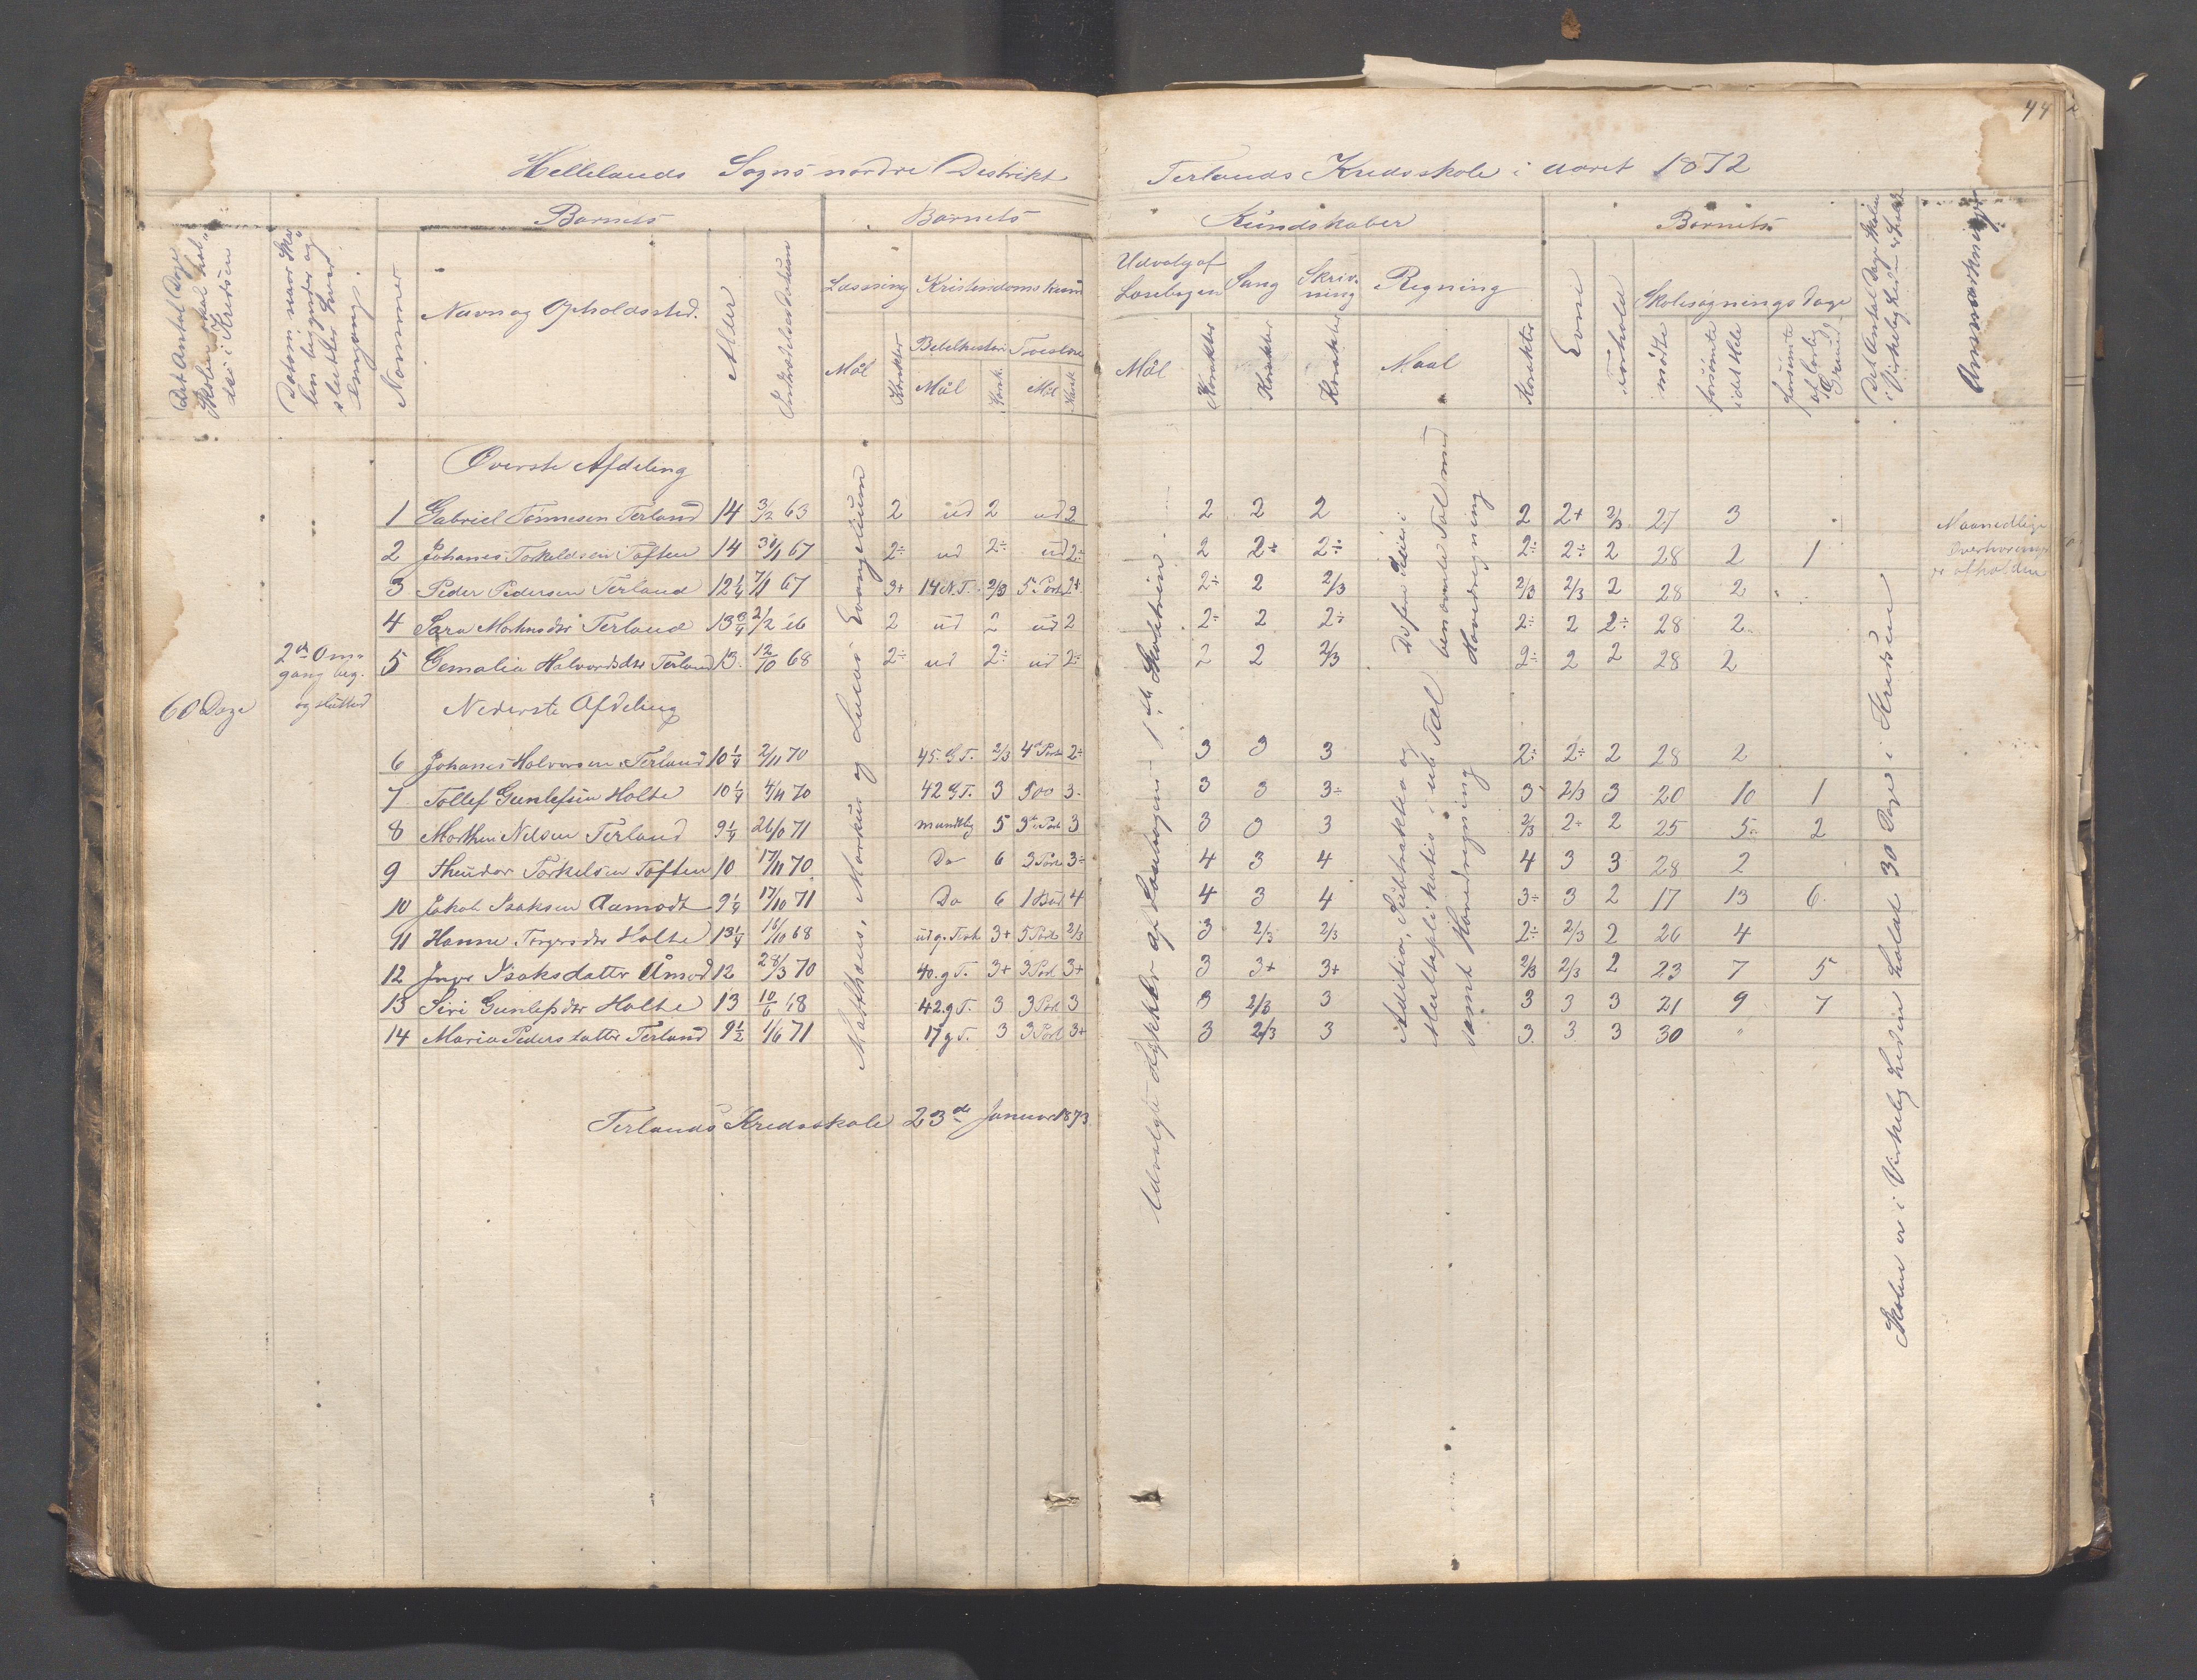 44
Hellelands Sogns nordre Destrikt
Terlands Kredsskole i aaret 1872
Barnets
Barnets
Kundskaber
Barnets
Det Antal Dage Skolen skal holdes i Kredsen
Datum naar Skolen begynder og slutter hver Omgang.
Nommer
Navn og Opholdssted.
Alder
Indtrædelsesdatum
Læsning
Kristendomskund
Mål
Karakter
Bibelhistori
Mål
Kark.
Mål
Kark
Udvalg af Læsebogen
Sang
Skrivning
Regning
Mål
Karakter
Karakter
Karakter
Maal
Karakter
Evne
Forhold
Skolesøgningsdage
mødte
forsømte i det Hele
forsømte af lovlig Grund
Anmærkninger
Øverste Afdeling
1 Gabriel Tønnesen Terland 14 3/2 63 2 ud 2 ud 2 2 2 2 2 2+ 2/3 27 3
2 Johanes Torkeldsen Toften 14 31/1 67 2÷ ud 2÷ ud 2÷ 2 2÷ 2÷ 2÷ 2÷ 2 28 2 1
3 Peder Pedersen Terland 12 1/4 7/1 67 3+ 14 N.T. 2/3 5 Part 2+ 2÷ 2 2/3 2/3 2/3 2 28 2
4 Sara Martinsdtr Terland 13 3/4 2 ud 2 ud 2 2÷ 2 2÷ 2÷ 2 2÷ 28 2
5 Gemalia Halvordsdtr Terland 13 12/10 68 2÷ ud 2÷ ud 2÷ 2 2 2/3 2÷ 2 2 28 2
Maanedlige Overhøringer er afholden
60 Dage
2den Omgang beg. og slutted
Nederste Afdeling
6 Johanes Halvorsen Terland 10 1/4 2/11 70 45. G.T. 2/3 4de Part 2÷ 3 3 3 2÷ 2÷ 2 28 2
7 Tollef Gunlefsen Holte 10 1/4 4/11 70 42 G.T. 3 3 3 3 3÷ 3 2/3 3 20 10 1
8 Morthen Nelsen Terland 9 1/4 26/10 71 mundtlig 5 3die Part 3 3 0 3 2/3 2÷ 2 25 5 2
9 Theudor Torkelsen Toften 10 17/11 70 Do 6 3 Part 3÷ 4 3 4 4 3 3 28 2
10 Jakob Isaksen Aamodt 9 1/4 17/10 71 Do 6 1 Bud 4 4 3 4 3÷ 3 2 17 13 6
11 Hanne Torgersdtr Holte 13 1/4 16/10 68 ud g. Test 3+ 5 Part 2/3 3 2/3 2/3 2÷ 2/3 2 26 4
12 Inge Isaksdatter Åmod 12 28/3 70 40. g T. 3+ 3 Part 3+ 3 3+ 3+ 2/3 2/3 2 23 7 5
13 Siri Gunlefsdtr Holte 13 10/6 68 42. g T. 3 3 Part 3 3 2/3 3 3 3 3 21 9 7
14 Maria Pedersdatter Terland 9 1/2 1/6 71 17 g T. 3 3 Part 3+ 3 2/3 3 3 3 3 30 "
Matthæus, Markus og Lucas Evangelium
Udvalgte Stykker af Læsebogens 1ste Skoletrin
De fire Regnearter i benævnte Tal med Hovedregning
Addition, Subtraktion og Multiplikation i ub. Tal samt Hovedregning
Skolen er i Virkeligheden holdt 30 Dage i Kredsen
Terlands Kredsskole 23de Januar 1873.